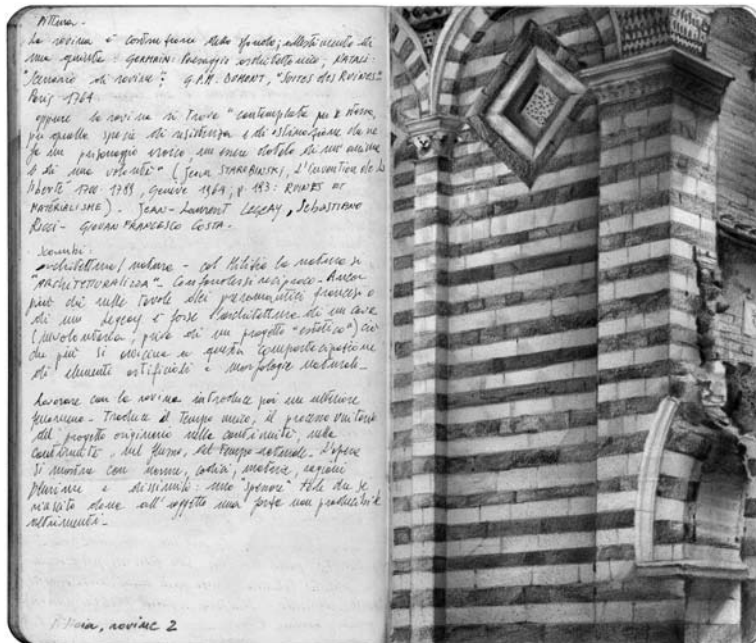 La rovina è
una quinta: GERMAIN: Paesaggio architettonico; NATALI:
"Scenario di rovine"; G.P.M. DUMONT, "SUITES DES RUINES"
Paris 1764
oppure la rovina si trova "contemplata per sé stessa,
per quella specie di resistenza e di ostinazione che ne
fa un personaggio eroico, un essere dotato di un'anima
e di una volontà" (Jean STAROBINSKI, L'Invention de la
liberté 1700-1789, Genève 1964; p. 193: RUINES ET
MATERIALISME). JEAN-Laurent Legeay, Sebastiano
Ricci - GIOVAN FRANCESCO COSTA.
Scambi:
architettura/natura - col la natura si
"ARCHITETTURALIZZA" - Confondersi reciproco. Ancor
più che nelle tavole dei preromantici francesi o
di un Legeay è forse l'architettura di una cava
(involontaria, priva di un progetto "estetico") ciò
che più si avvicina a questa compartecipazione
di elementi artificiali e morfologie naturali -
Lavorare con la rovina introduce poi un ulteriore
fenomeno - Traduce il Tempo unico, il processo unitario
del progetto originario nella continuità, nella
nel flusso, del tempo naturale - L'opera
si mostra con norme, codici, materie, ragioni
plurime e dissimili: uno "spessore" tale che se
riuscito dona all'oggetto una forza non producibile
altrimenti -
rovine 2